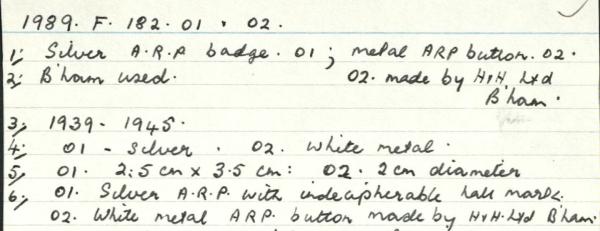 1989. F. 182. 01 . 02.
1; Silver A.R.P badge. 01 ; metal ARP button. 02.
2; B'ham used. 02. made by H.H. Ltd
B'ham.
3; 1939 - 1945.
4; 01 - Silver. 02. White metal.
5; 01. 2.5 cm x 3.5 cm : 02. 2cm diameter
6; 01. Silver A.R.P. with indecipherable hall mark.
02. White metal ARP. button made by H.H. Ltd B'ham.